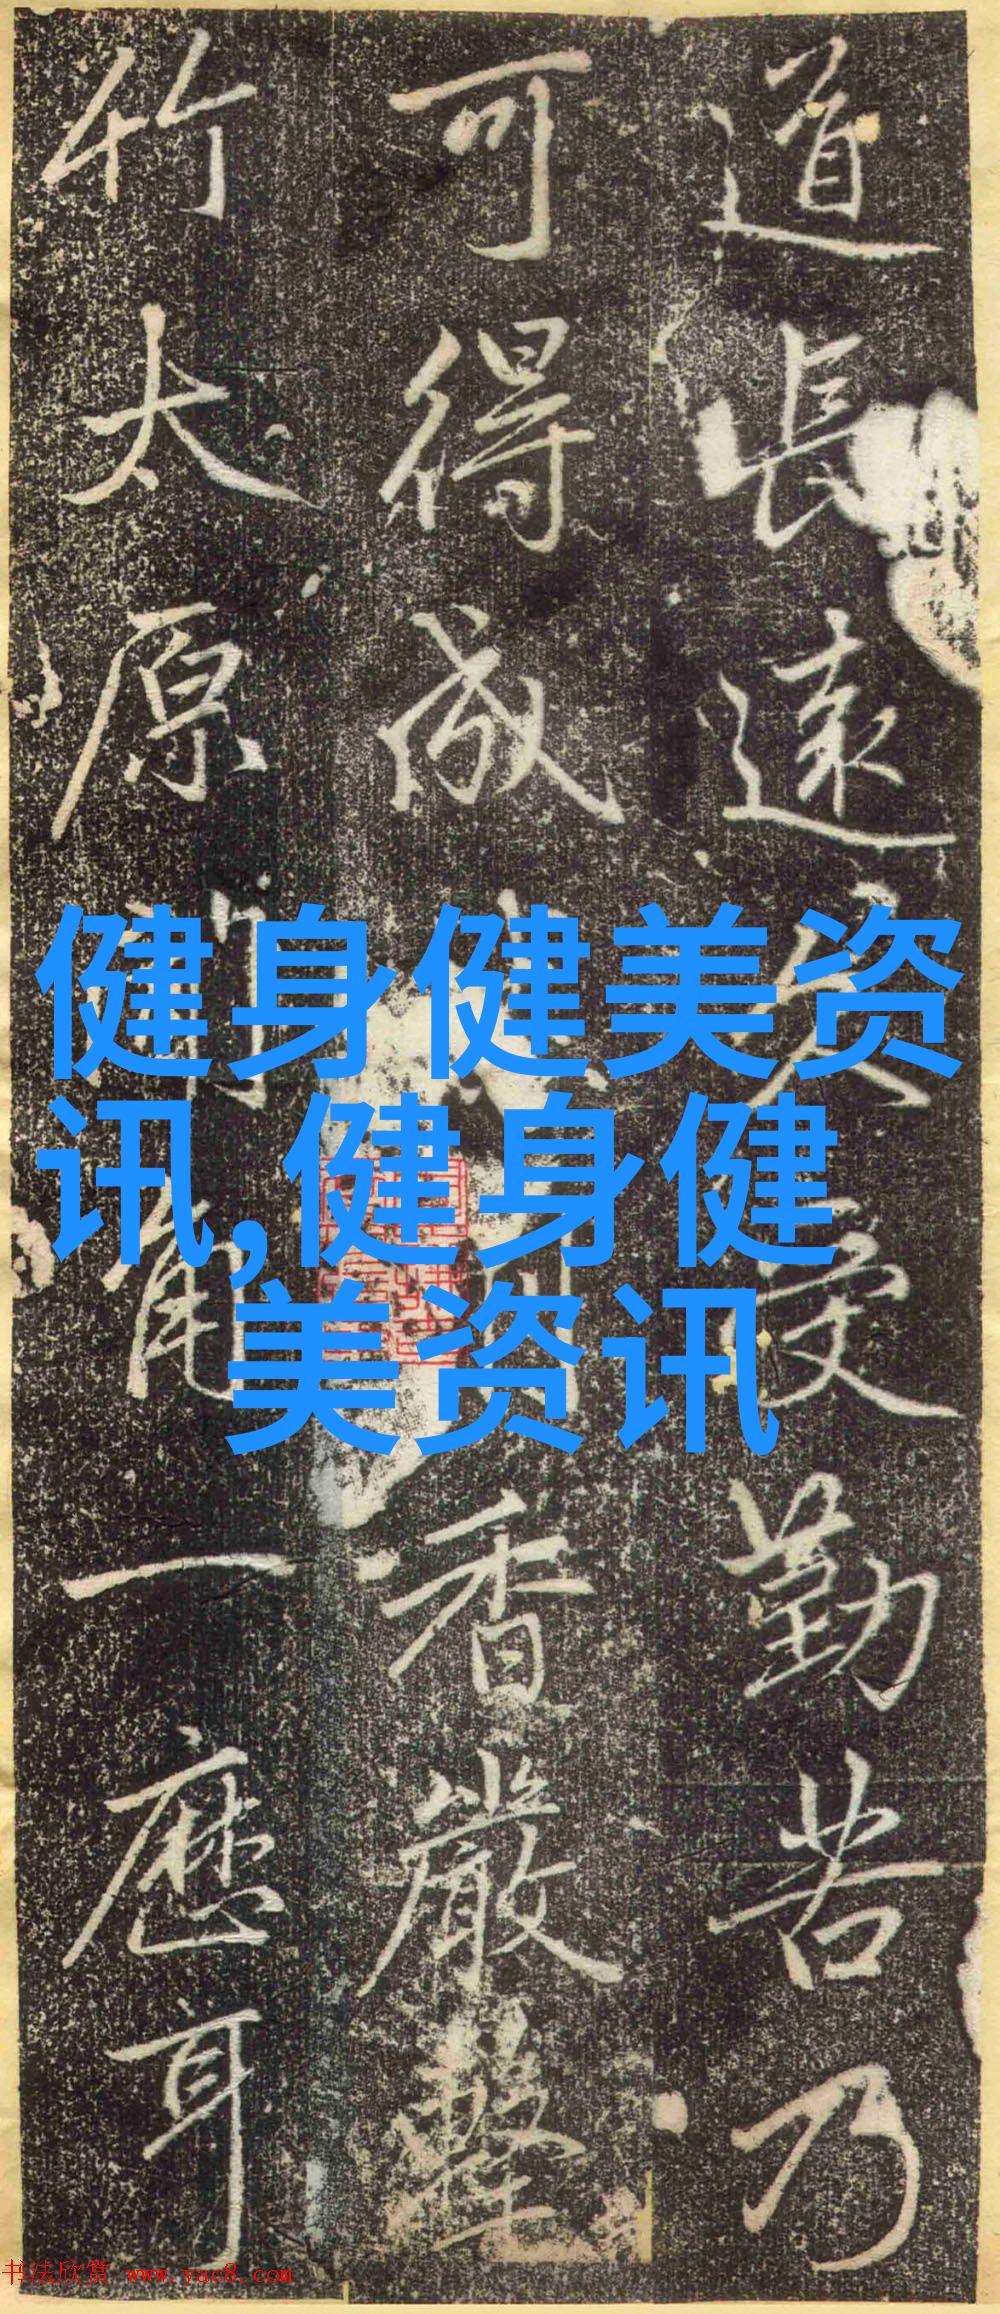 道長遠久受勤苦乃
可得成香嚴擊
竹太原角一應耳
健身健美资
讯,健身健
美资讯
书法欣赏 www.yac8.com